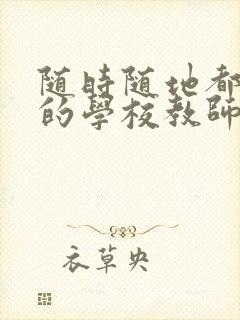 随時随地都
的學校教師
衣草央